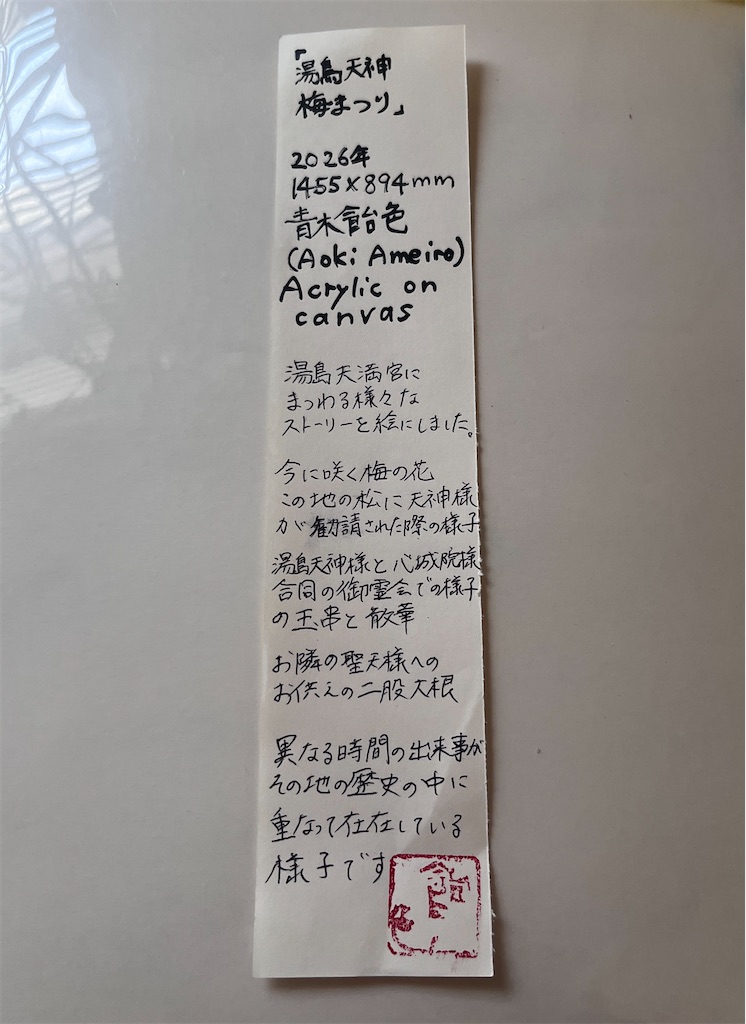 「湯島天神
梅まつり」
2026年
1455×894mm
青木飴色
(Aoki Ameiro)
Acrylic on
canvas
湯島天満宮に
まつわる様々な
ストーリーを絵にしました。
今に咲く梅の花
この地の松に天神様
が勧請された際の様子
湯島天神様と心城院様
合同の御霊会での様子
の玉串と散華
お隣の聖天様への
お供えの二股大根
異なる時間の出来事が
その地の歴史の中に
重なって在在している
様子です